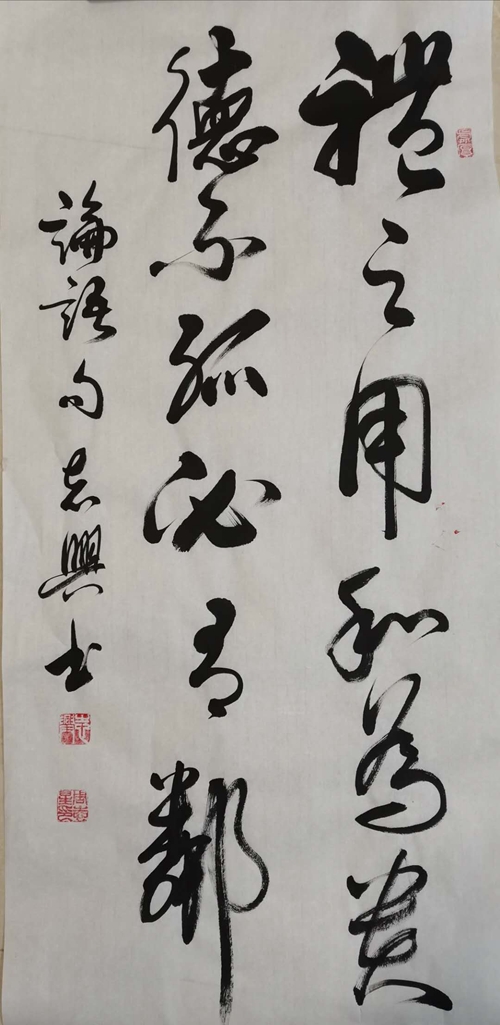 禮之用和為貴
德不孤必有鄰
論語句志興书